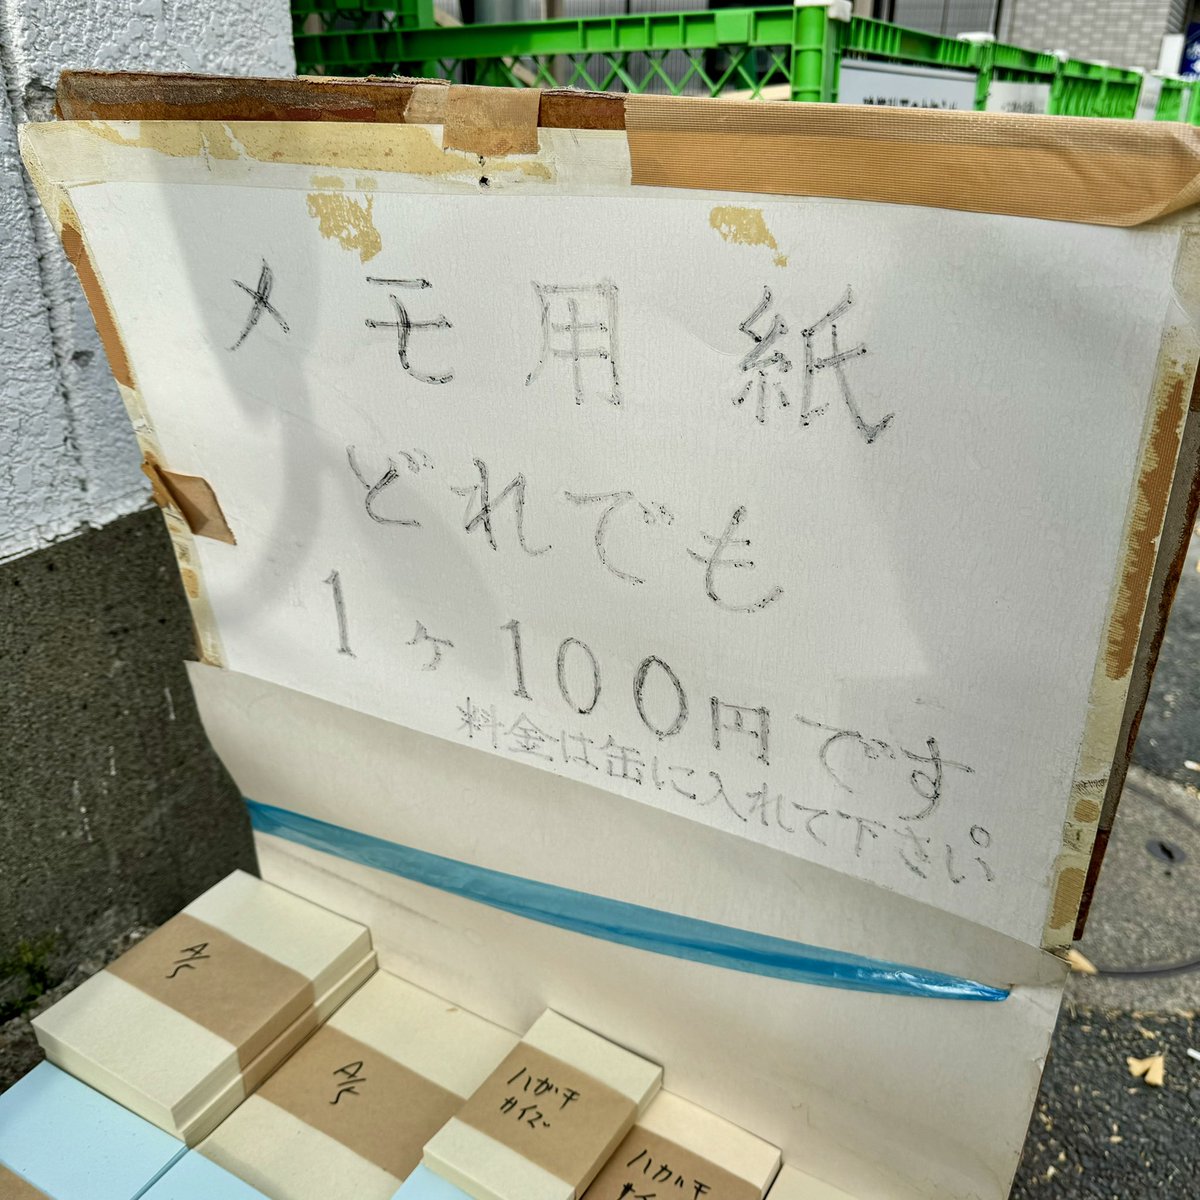 メモ用紙
どれでも
1ヶ100円です。
料金は缶に入れて下さい
A/5
A/5
ハガキ
サイズ
ハガキ
サイズ